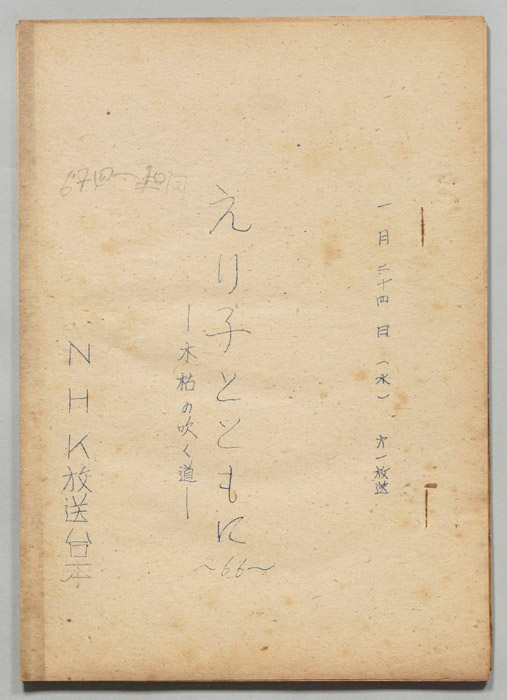 一月二十四日（水）　才一放送
えり子とともに
～66～
―木枯の吹く道―
NHK放送台本
67回～70回